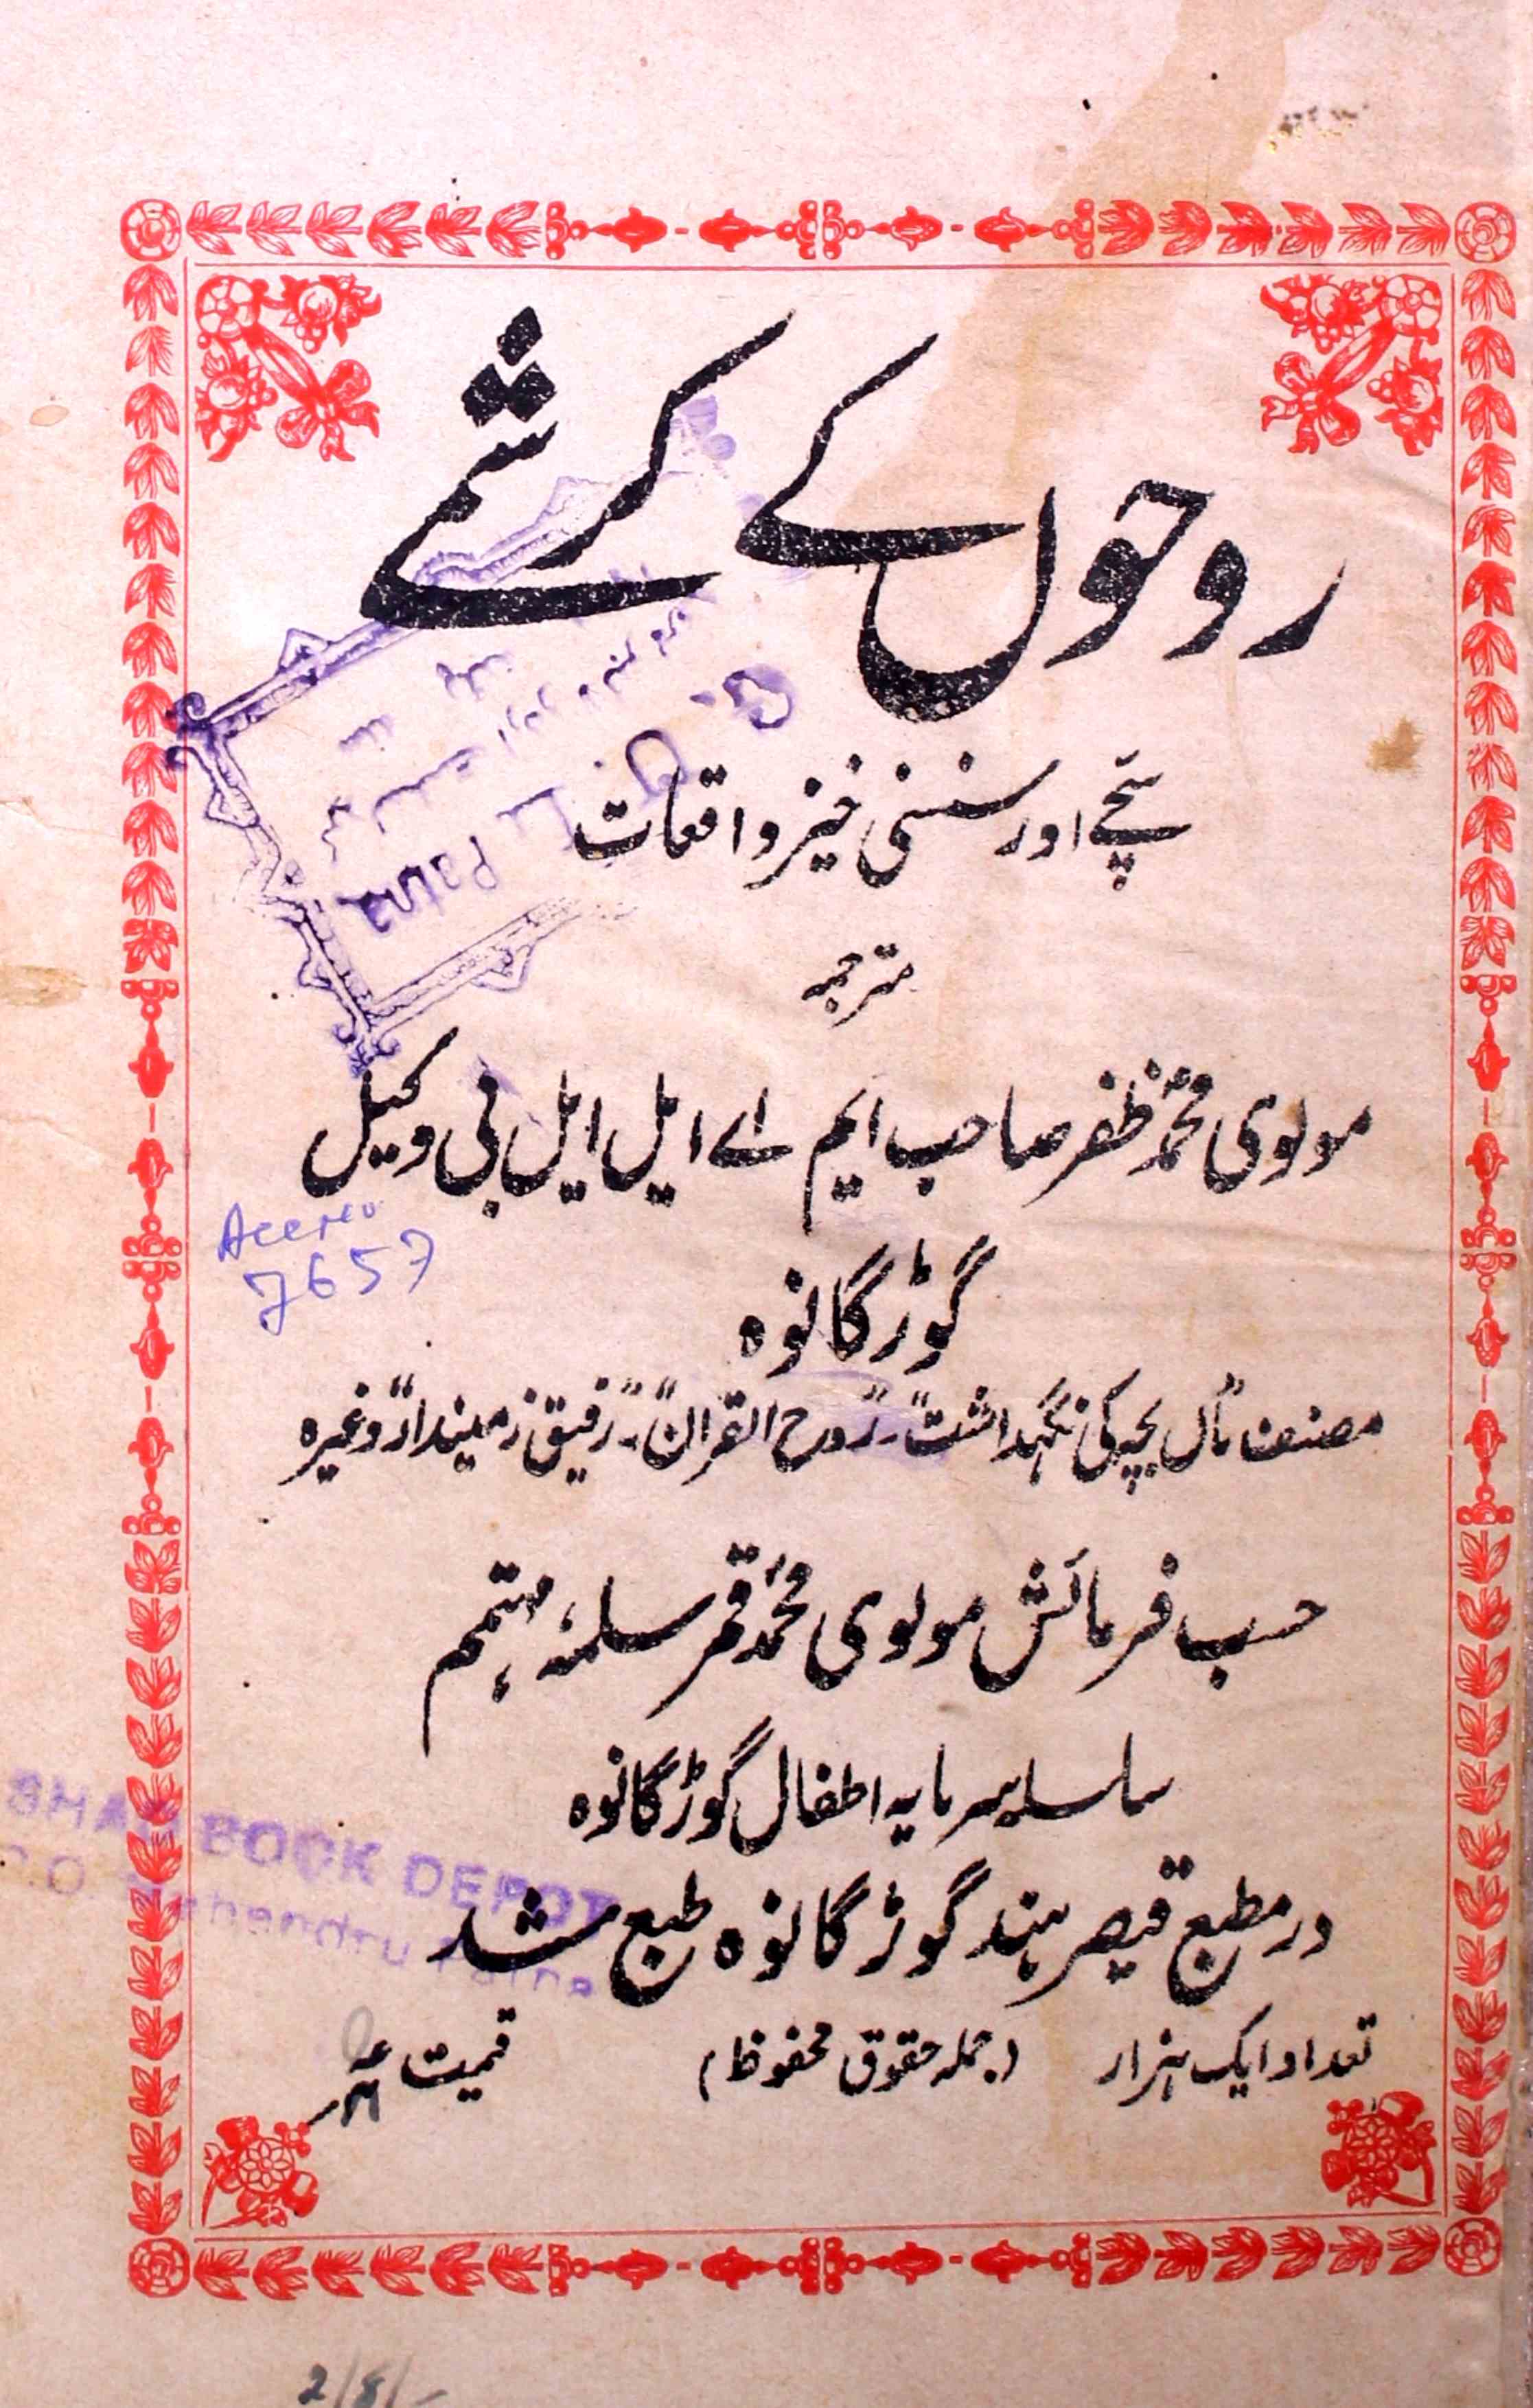 روحوں کے کرشمے
سچّے اور سنسنی خیز واقعات
Patna
مترجمہ
مولوی محمّد ظفر صاحب ایم اے ایل ایل بی وکیل
7657
گوڑگانوہ
مصنف "ماں بچہ کی نگہداشت"۔ "روح القرآن"۔ "رفیق زمیندار" وغیرہ
حسب فرمائش مولوی محمّد قمر سلمہٗ مہتمم
سلسلہ سرمایہ اطفال گوڑگانوہ
BOOK DEPOT
در مطبع قیصر ہند گوڑگانوہ طبع شد
تعداد ایک ہزار (جملہ حقوق محفوظ) قیمت
2/8/-